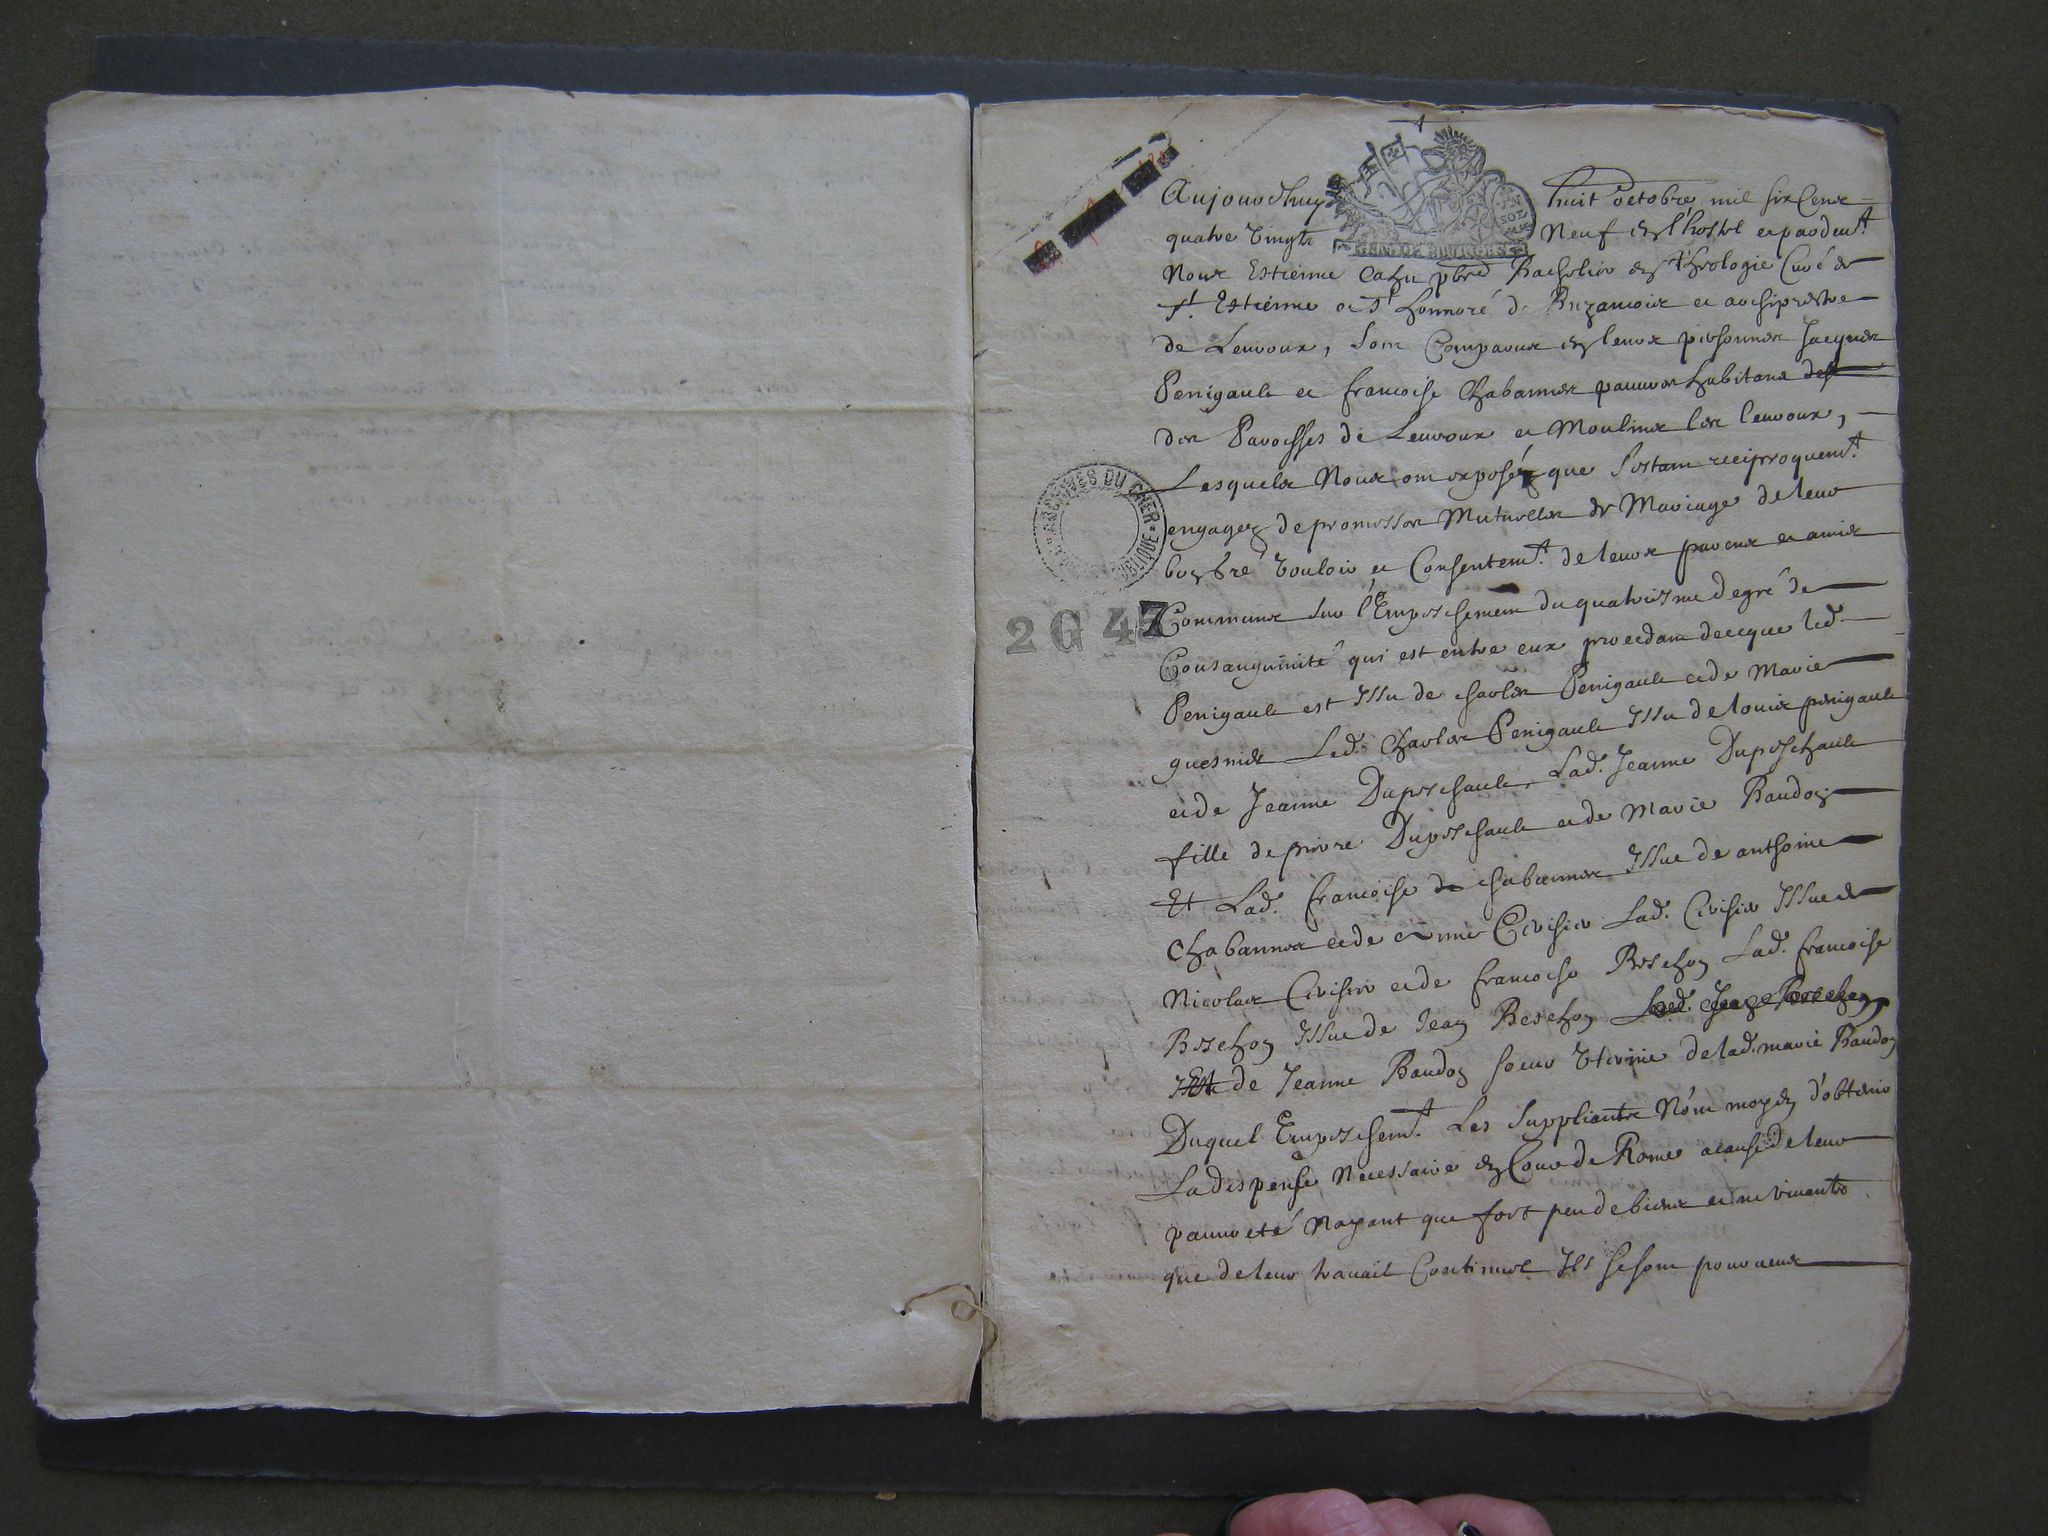 1
Aujourdhuy huit octobre mil six Cens
quatre vingts Neuf en l'hostel et pardeut.
Nous Estienne Cahu pbre Bachelier en theologie Curé de
St. Estienne et St honnoré de Buzancois et archiprestre
de Leuroux, sont Comparus en leurs personnes Jacques
Penigault et francoise Chabannes pauures habitans des
des Paroisses de Leuroux et Moulins les leuroux,
Lesquels Nous ont exposéz que s'estant reciproquemt.
engagez de promesses Mutuelles de Mariage de leur
bon gré vouloir et Consentemt. de leurs parens et amis
Communs sur l'Empeschement du quatriesme degré de
Consanguinité qui est entre eux procedant de ce que led.
Penigault est Issu de Charles Penigault et de Marie
guesnier Led. Charles Penigault Issu de louis penigault
et de Jeanne Dupeschault, Lad. Jeanne Dupeschault
fille de pierre Dupeschault et de Marie Baudon
Et Lad. francoise de chabannes Issue de anthoine
Chabannes et de anne Crisier Lad. Crisier Issue de
Nicolas Crisier et de francoise Beschon Lad. francoise
Beschon Issue de Jean Beschon
et de Jeanne Baudon soeur Uterine de lad. marie Baudon
Duquel Empeschemt. Les Suppliants N'ont moyen d'obtenir
La dispense Necessaire en Cour de Rome a cause de leur
pauureté Nayant que fort peu de biens et ne viuants
que de leur trauail Continuel Ils se sont pourueus
GEN. DE BOURGES
VN SOL
ARCHIVES DU CHER
2 G 47